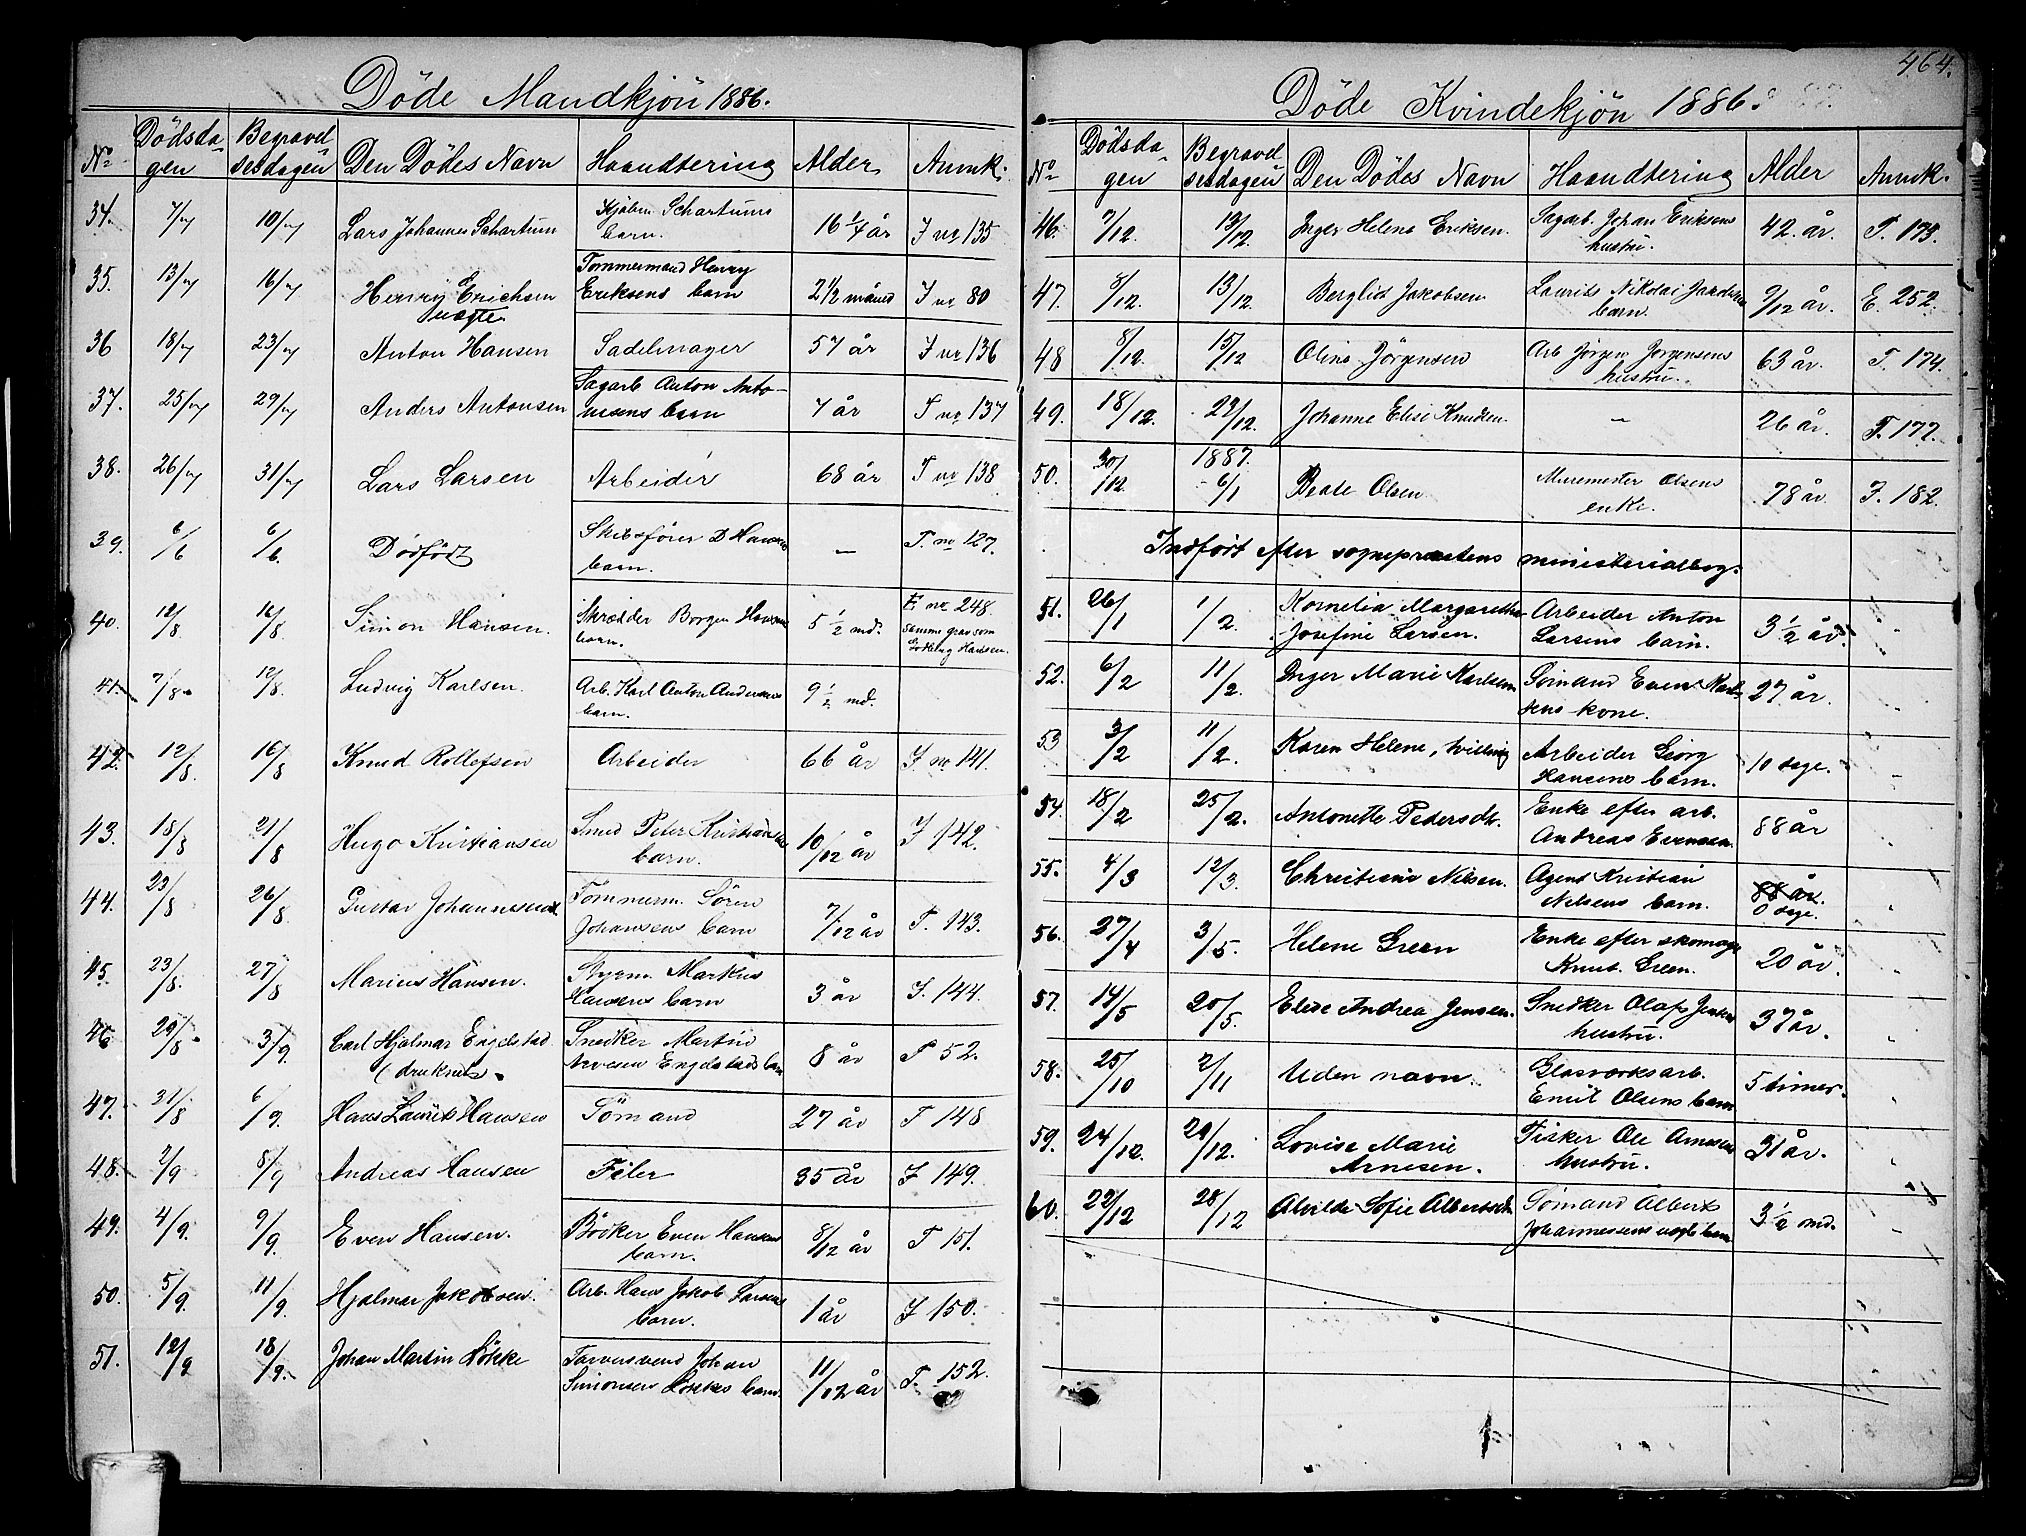 464.
Döde Mandkjön 1886.
No Dödsda- gen Begravel sesdagen Den Dödes Navn Haandtering Alder Anmk:
34. 7/7 10/7 Lars Johannes Schartum Schartums barn. 16 1/4 år J nr 135
35. 13/7 16/7 Henry Erichsen uægte Tømmermand Henry Eriksens barn 2 1/2 måned J nr 80
36 18/7 23/7 Anton Hansen Sadelmager 57 år J nr 136
37. 25/7 29/7 Anders Antonsen Sagarb Anton Anto- nesens barn 7 år J nr 137
38. 26/7 31/7 Lars Larsen Arbeider 68 år J nr 138
39. 6/6 6/6. Dødfødt Skibsfører D Hansens barn. — J. no 127.
40. 12/8 16/8. Simon Hansen. Skrædder Borgen Hansens barn. 5 1/2 md. E nr 248. samme grav som Hansen.
41. 7/8. 12/8. Ludvig Karlsen. Arb. Karl Anton Andersens barn. 9 1/2 md.
42. 12/8. 16/8 Knud Rollefsen Arbeider 66 år J. no 141.
43. 18/8 21/8 Hugo Kristiansen Smed Peter Kristiansens barn. 10/12 år J 142.
44. 23/8 26/8. Gustav Johannessen Tømmerm. Sören Johansens barn 7/12 år J. 143.
45. 23/8. 27/8 Marius Hansen. Styrm. Markus Hansens barn 3 år J. 144.
46 29/8. 3/9. Carl Hjalmar Engelstad (druknet. Snedker Martin Engelstads barn 8 år J 52.
47. 31/8 6/9. Hans Laurits Hansen Sömand 27 år J 148
48. 2/9 8/9 Andreas Hansen Feler 35 år J 149.
49. 4/9. 9/9. Even Hansen. Bödker Even Hansens barn. 8/12 år J 151.
50. 5/9. 11/9. Hjalmar Jakobsen. Arb. Hans Jakob Larsens barn. 1 år J 150.
51. 12/9 18/9. Johan Martin Lökke Johan Simonsen Lökkes barn. 11/12 år J. 152.
Döde Kvindekjön 1886.
No Dödsda- gen Begravel sesdagen Den Dödes Navn Haandtering Alder Anmk.
46. 7/12. 13/12. Inger Helene Eriksen. Sagarb. Johan Eriksens hustru. 42. år. J. 173.
47. 8/12. 13/12. Berglid Jakobsen Laurits Nikolai Jakobsens barn. 9/12 år. E. 252.
48 8/12. 15/12 Olina Jörgensen Arb Jörgen Jörgensens hustru. 63 år. J. 174.
49. 18/12. 22/12. Johanne Elise Knudsen. — 26 år. J. 177.
50. 30/12. 1887. 6/1 Beate Olsen Muremester Olsens enke. 78 år. J. 182.
Indført efter sognepræstens ministerialbog.
51. 26/1 1/2. Kornelia Margarethe Josefine Larsen. Arbeider Anton Larsens barn. 3 1/2 år.
52. 6/2 11/2. Inger Marie Karlsen Sömand Even Karl- sens kone. 27 år.
53 3/2 11/2. Karen Helene, tvilling Arbeider Georg Hansens barn. 10 dage.
54. 18/2 25/2. Antonette Pedersdt. Enke efter arb. Andreas Evensen. 88 år
55. 4/3 12/3. Christiane Nilsen. Agent Kristian Nilsens barn. 88 år. 0 dage.
56. 27/4 3/5. Helene Green Enke efter skomager Knut. Green. 20 år.
57. 14/5 20/5. Elise Andrea Jensen. Snedker Olaf Jensens hustru. 37 år.
58. 25/10 2/11 Uden navn. Glasværksarb. Emil Olsens barn 5 timer.
59. 24/12. 29/12. Lovise Marie Arnesen. Fisker Ole Arnesens hustru. 31 år.
60. 22/12 28/12 Alvilde Sofie Albertsdt. Sömand Alberts Johannessens uægte barn 3 1/2 md.